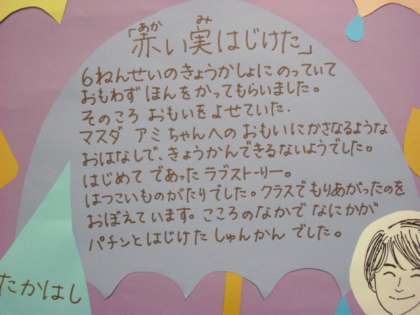 「赤い実はじけた」
あか
み
6ねんせいのきょうかしょに のっていて
おもわず ほんをかってもらいました。
そのころ おもいをよせていた.
マスダ アミちゃんへの おもいにかさなるような
おはなしで、きょうかんできるないようでした。
はじめて であった ラブストーリー。
はつこいものがたりでした。クラスでもりあがったのを
おぼえています。こころのなかで なにかが
パチンとはじけた しゅんかん でした。
たかはし